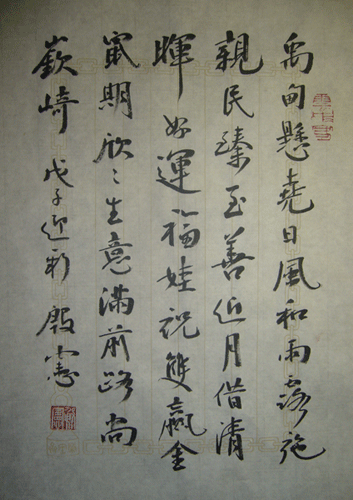 禹甸懸堯日風和雨露施
親民臻至善近月借清
暉好運福娃祝雙贏金
鼠期欣〻生意滿前路尚
嶔崎 戊子迎新 殷憲